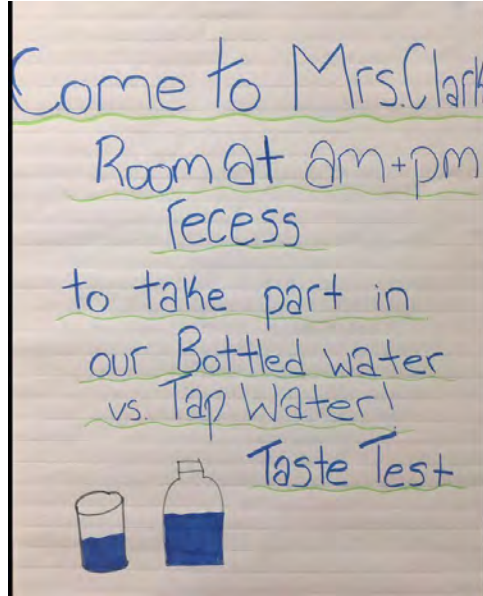 Come to Mrs.Clark
Room at am+pm
recess
to take part in
our Bottled water
vs. Tap Water!
Taste Test